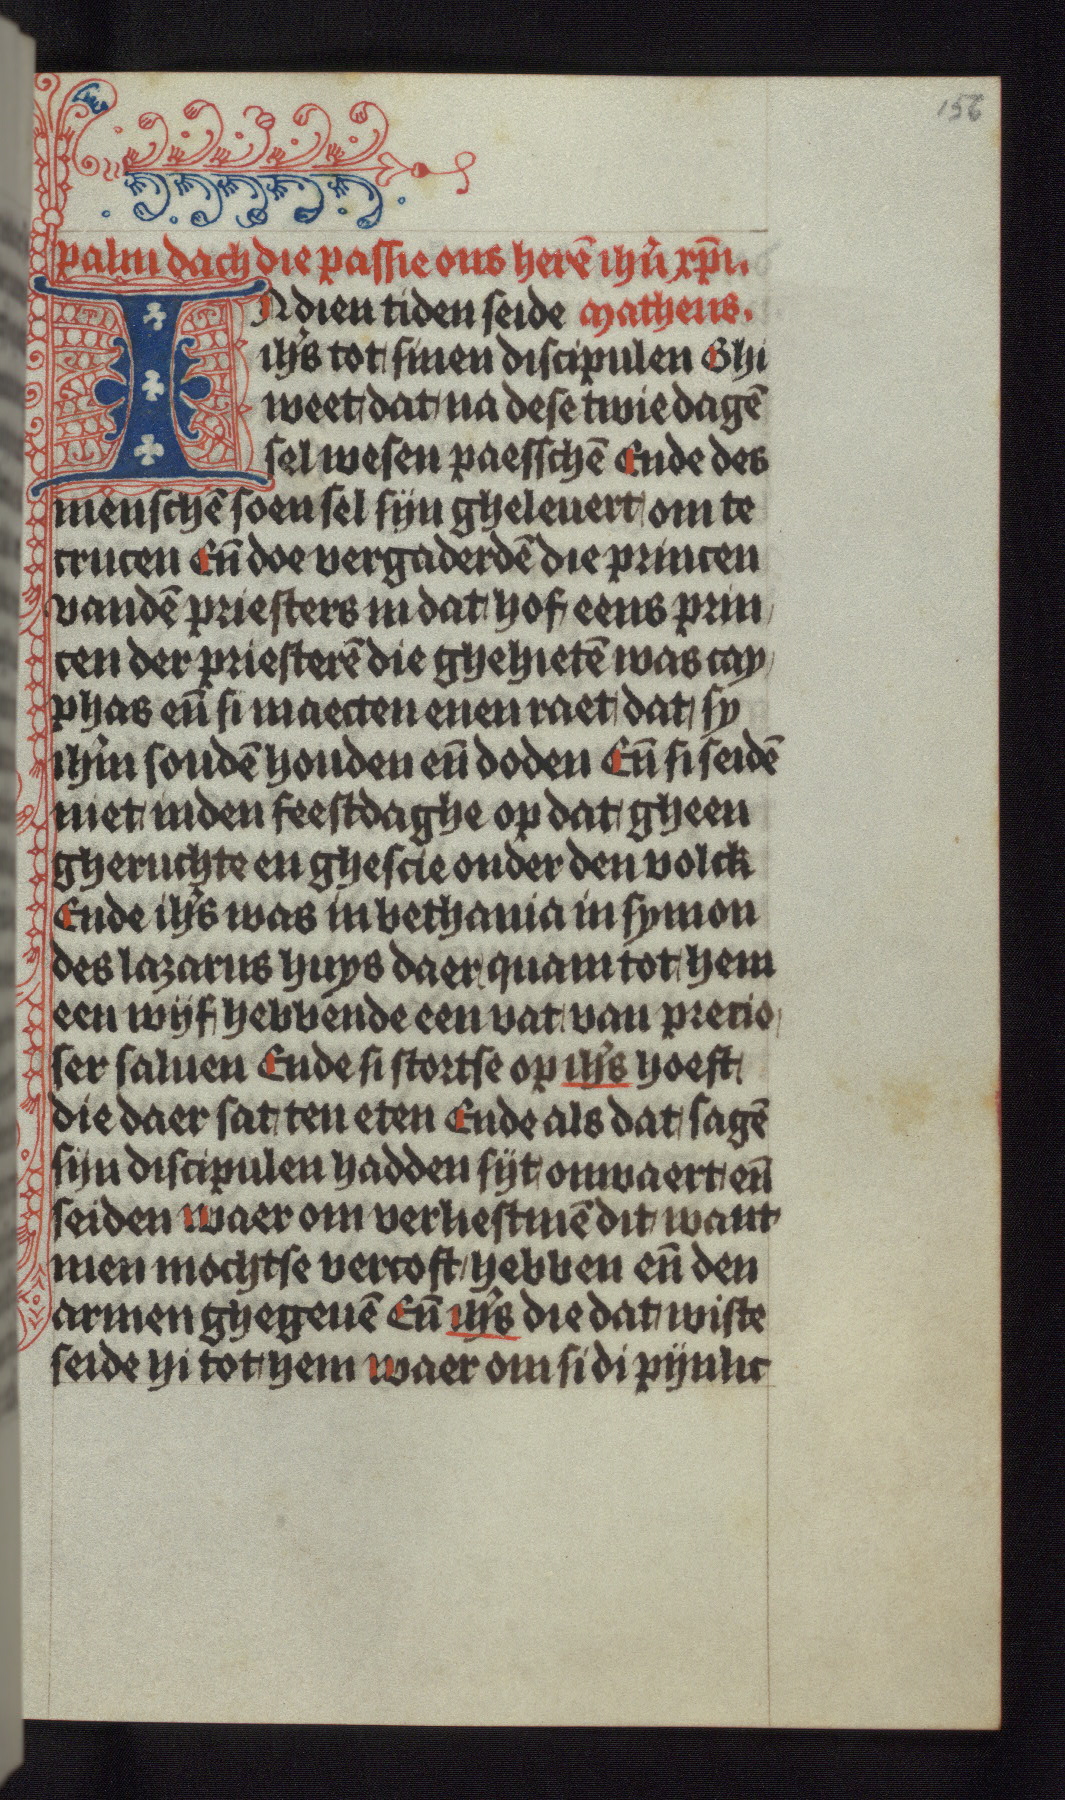 156
palm dach die passie ons herē ihū xpī.
IN dien tiden seide Matheus.
ihs tot sinen discipulen Ghi
weet dat na dese twie dagē
sel wesen paesschē Ende des
menschē soen sel sijn gheleuert om te
crucen Eñ doe vergaderdē die princen
vandē priesters in dat hof eens prin
cen der priesterē die ghehietē was cay
phas eñ si maecten enen raet dat sy
ihm soudē houden eñ doden Eñ si seidē
niet inden feestdaghe op dat gheen
gheruchte en ghescie onder den volck
Ende ihs was in bethania in symon
des lazarus huys daer quam tot hem
een wijf hebbende een vat van precio
ser saluen Ende si stortse op ihs hoeft
die daer sat ten eten Ende als dat sagē
sijn discipulen hadden sijt onwaert eñ
seiden waer om verliestmē dit want
men mochtse vercoft hebben eñ den
armen ghegeuē Eñ ihs die dat wiste
seide hi tot hem waer om sidi pijnlic